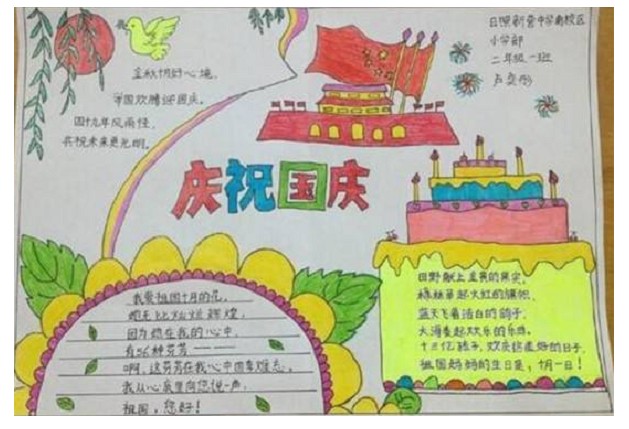 金秋十月好心境,
举国欢腾迎国庆。
四十九年风雨怪,
共祝未来更光明。
日照新营中学南校区
小学部
二年级一班
庆祝国庆
我爱祖国十月的花,
因为你在我的心中,
有56种芬芳————
啊,这芬芳在我心中回荡难忘。
我从心底里向您说一声,
祖国,您好!
田野献上金黄的果实,
枫林举起火红的旗帜,
蓝天飞着洁白的鸽子,
大海奏起欢乐的乐曲。
十三亿孩子,欢庆妈妈的日子,
祖国妈妈的生日是,十月一日!